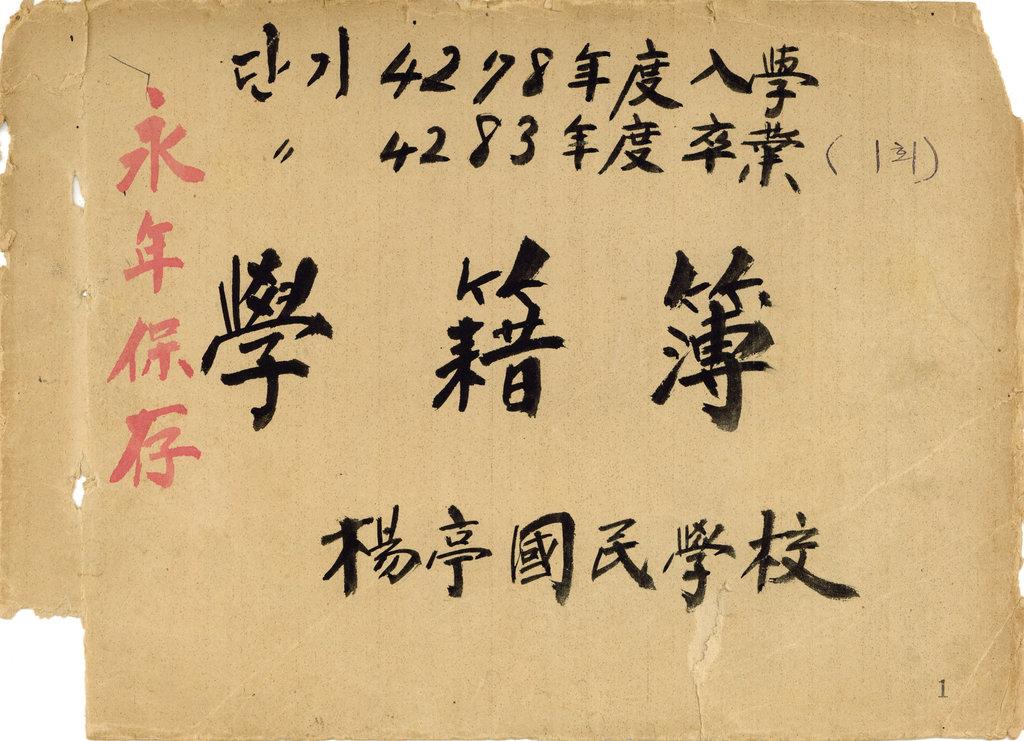 단기 4278年度入學
〃 4283年度卒業 (1회)
永年保存
學籍簿
楊亭國民學校
1